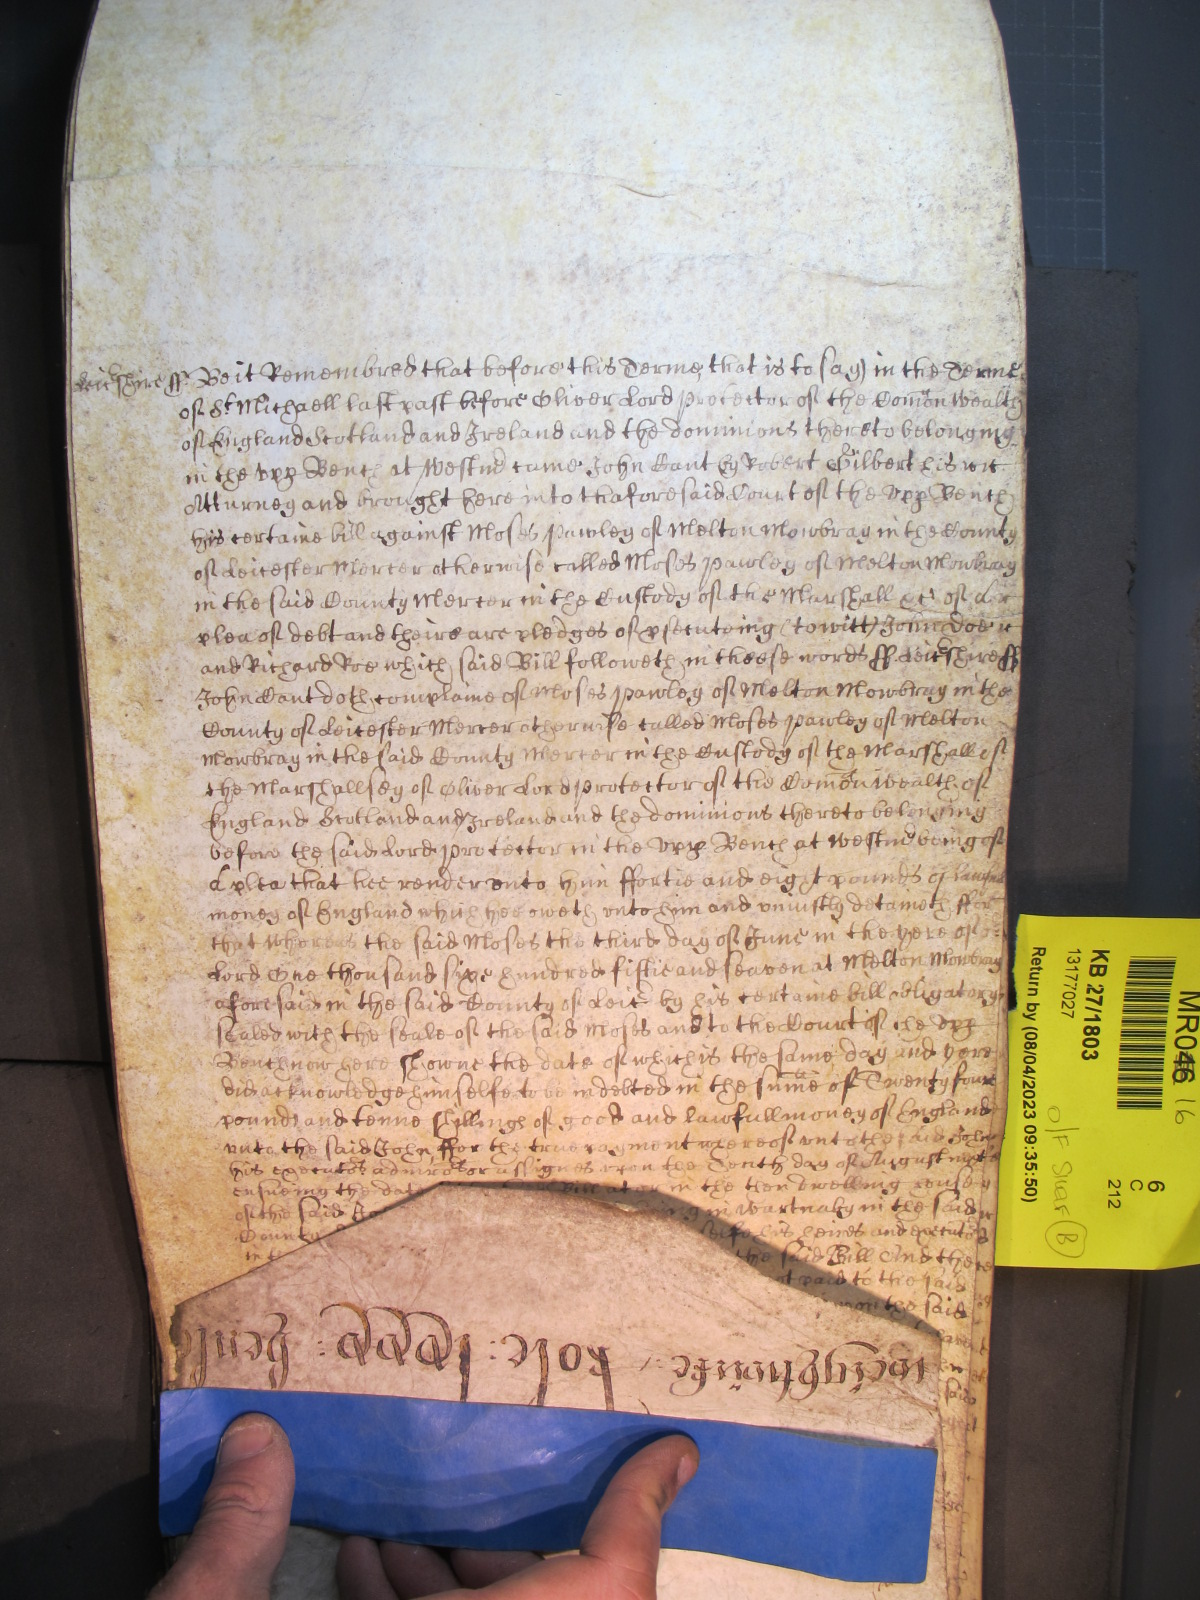 Leicshire ss Be it Remembred that before this Terme, that is to say, in the Terme
of St Michaell last past before Oliver Lord Protector of the Comonwealth
of England Scotland and Ireland and the dominions thereto belonging
in the vpp Bench at Westmr came John Cant by Robert Gilbert his
Atturney and brought here into thaforesaid Court of the vpp Bench
his certaine bill against Moses Pawley of Melton Mowbray in the County
of Leicester Mercer otherwise called Moses Pawley of Melton Mowbray
in the said County Mercer in the Custody of the Marshall &c of a
plea of debt and theire are pledges of psecuteing (to witt) John doe
and Richard Roe which said Bill followeth in theese words ss Leicshire ss
John Cant doth complaine of Moses Pawley of Melton Mowbray in the
County of Leicester Mercer otherwise called Moses Pawley of Melton
Mowbray in the said County Mercer in the Custody of the Marshall of
the Marshallsey of Oliver Lord Protector of the Comonwealth of
England Scotland and Ireland and the dominions thereto belonging
before the said Lord Protector in the vpp Bench at Westmr being of
a plea that hee render vnto him ffortie and eight pounds of lawfull
money of England which hee oweth vnto him and vniustly detaineth ffor
that whereas the said Moses the third day of June in the yere of
Lord One thousand sixe hundred fiftie and seaven at Melton Mowbray
aforesaid in the said County of Leic by his certaine bill obligatory
sealed with the seale of the said Moses and to the Court of the vpp
Bench now here showne the date of which is the same day and yere
did acknowledge himselfe to be indebted in the sume of Twenty foure
pounds and tenne shillings of good and lawfull money of England
vnto the said John ffor the true payment whereof vnto the said John
his executors admistrs or assignes vpon the Tenth day of August next
ensueing the date in the then dwelling house
of the said in Wartnaby in the said
County his heires and executors
in the the said Bill And the
not paid to the said
vpon the said
KB 27/1803
13177027
Return by (08/04/2023 09:35:50)
MR046 16
6
C
212
O/F Shelf B